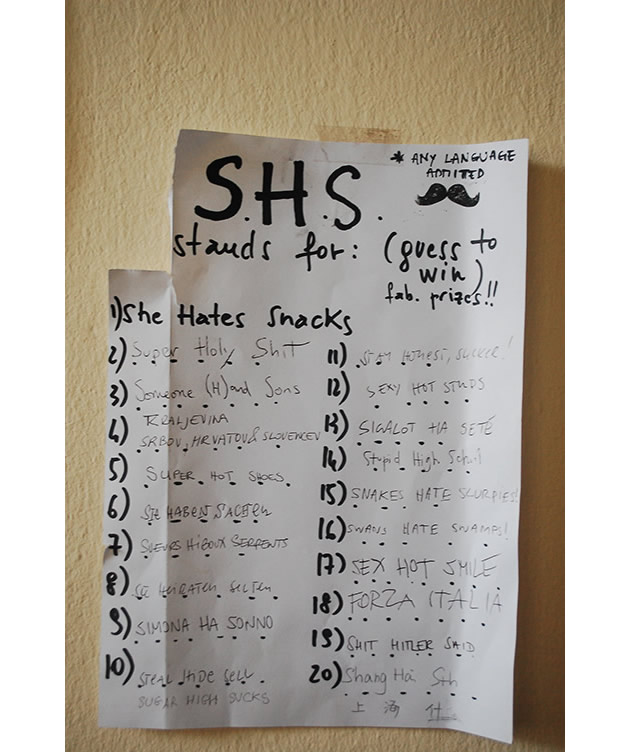 * ANY LANGUAGE
ADMITTED
S.H.S.
stands for: (guess to
win)
fab. prizes!!
1) She Hates Snacks
2) Super Holy Shit
3) Someone (H)and Sons
4) KRALJEVINA
SRBOV, HRVATOV & SLOVENCEV
5) SUPER HOT SHOES
6) SIE HABEN SACHEN
7) SUEURS HIBOUX SERPENTS
8) SIE HEIRATEN SELTEN
9) SIMONA HA SONNO
10) STEAL HIDE SELL
SUGAR HIGH SUCKS
11) STAY HONEST, SUCKER!
12) SEXY HOT STUDS
13) SIGALOT HA SETE
14) Stupid High School
15) SNAKES HATE SLURPIES!
16) SWANS HATE SWAMPS!
17) SEX HOT SMILE
18) FORZA ITALIA
19) SHIT HITLER SAID
20) Shang Hai Sth
上 海 什